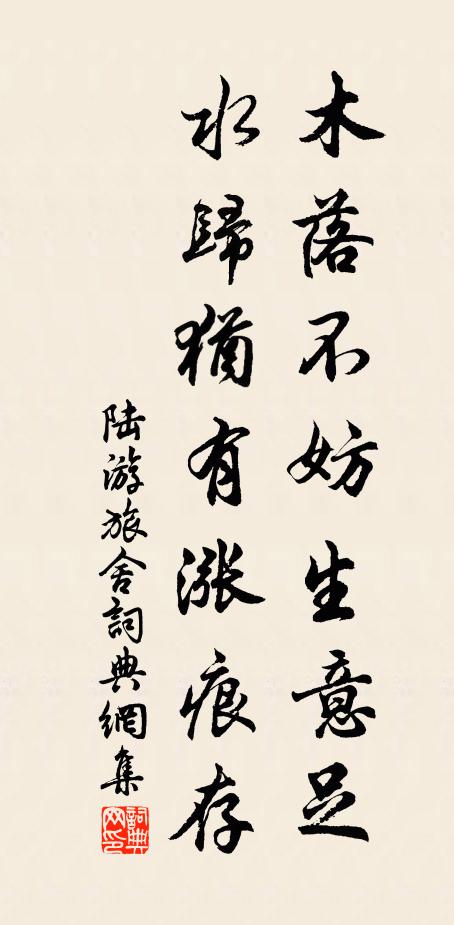 木落不妨生意足
水歸猶有漲痕存
陆游旅舍詞典網集
詞典網印